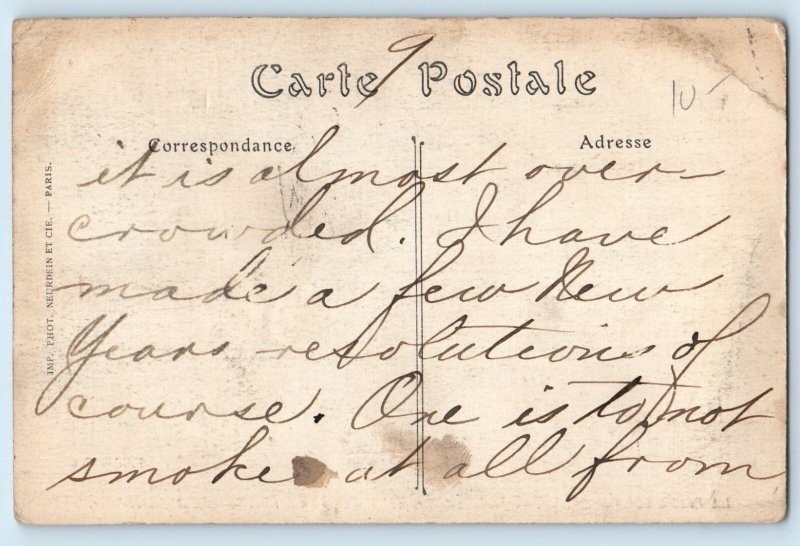 9
Carte Postale
10-
Correspondance
Adresse
IMP. PHOT. NEURDEIN ET CIE. — PARIS.
it is almost over-
crowded. I have
made a few New
Years resolutions of
course. One is to not
smoke at all from